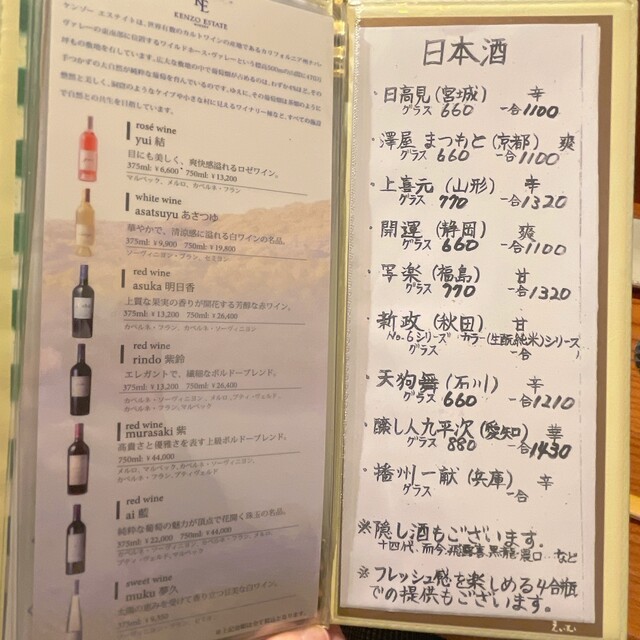 KENZO ESTATE
ケンゾー エステイトは、世界有数のカルトワインの産地であるカリフォルニア州ナパ・
rosé wine
yui 結
目にも美しく、爽快感溢れるロゼワイン。
375ml: ¥6,600 750ml: ¥13,200
マルベック、メルロ、カベルネ・フラン
white wine
asatsuyu あさつゆ
華やかで、清涼感に溢れる白ワインの名品。
375ml: ¥9,900 750ml: ¥19,800
ソーヴィニヨン・ブラン、セミヨン
red wine
asuka 明日香
上質な果実の香りが開花する芳醇な赤ワイン。
375ml: ¥13,200 750ml: ¥26,400
カベルネ・フラン、カベルネ・ソーヴィニヨン
red wine
rindo 紫鈴
エレガントで、繊細なボルドーブレンド。
375ml: ¥13,200 750ml: ¥26,400
カベルネ・ソーヴィニヨン、メルロ、プティ・ヴェルド、
カベルネ・フラン、マルベック
red wine
murasaki 紫
高貴さと優雅さを表す上級ボルドーブレンド。
750ml: ¥44,000
メルロ、マルベック、カベルネ・ソーヴィニヨン、
カベルネ・フラン、プティヴェルド
red wine
ai 藍
純粋な葡萄の魅力が頂点で花開く珠玉の名品。
375ml: ¥22,000 750ml: ¥44,000
カベルネ・ソーヴィニヨン、カベルネ・フラン、メルロ、
プティ・ヴェルド、マルベック
sweet wine
muku 夢久
太陽の恵みを受けて香り立つ甘美な白ワイン。
日本酒
・日高見(宮城) 辛
グラス 660 一合1100
・澤屋 まつもと(京都) 爽
グラス 660 一合1100
・上喜元(山形) 辛
グラス 770 一合1320
・開運(静岡) 爽
グラス 660 一合1100
・写楽(福島) 甘
グラス 770 一合1320
・新政(秋田) 甘
No.6シリーズ カラー(生酛純米)シリーズ
グラス 一合
・天狗舞(石川) 辛
グラス 660 一合1210
・醸し人九平次(愛知)
グラス 880 一合1430
・播州一献(兵庫) 辛
グラス 一合
※隠し酒もございます。
十四代、而今、飛露喜、黒龍、 など
※フレッシュ感を楽しめる4合瓶
での提供もございます。